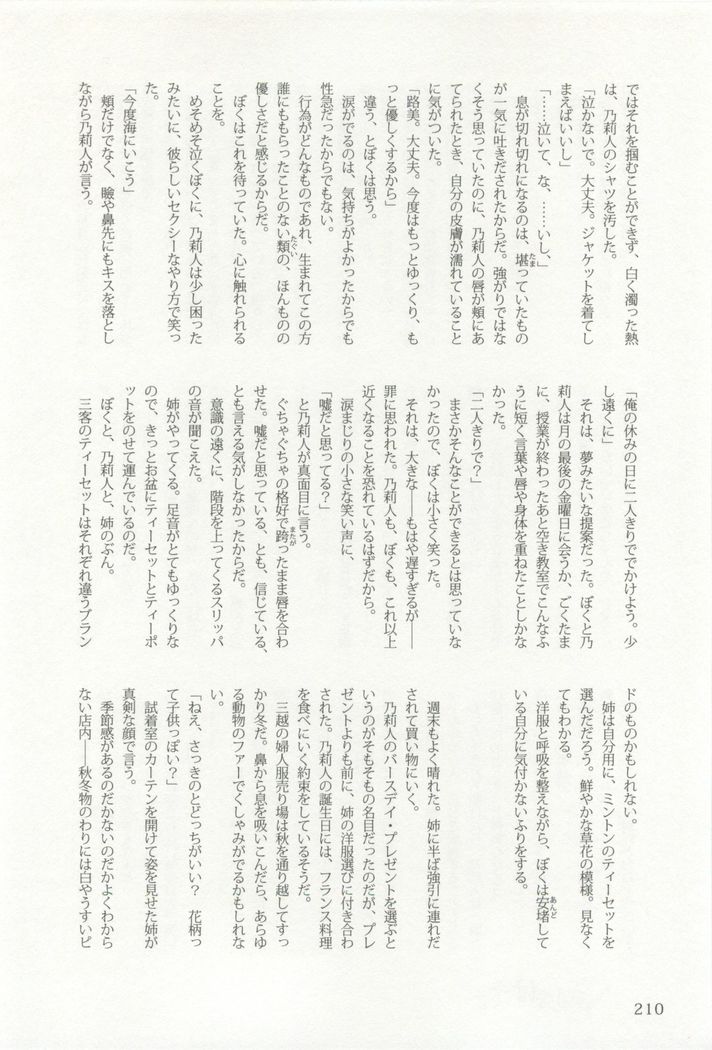 ではそれを掴むことができず、白く濁った熱
は、乃莉人のシャツを汚した。
「泣かないで。大丈夫。ジャケットを着てし
まえばいいし」
「……泣いて、な、……いし、」
息が切れ切れになるのは、堪っていたもの
が一気に吐きだされたからだ。強がりではな
くそう思っていたのに、乃莉人の唇が頬にあ
てられたとき、自分の皮膚が濡れていること
に気がついた。
「路美。大丈夫。今度はもっとゆっくり、も
っと優しくするから」
違う、とぼくは思う。
涙がでるのは、気持ちがよかったからでも
性急だったからでもない。
行為がどんなものであれ、生まれてこの方
誰にももらったことのない類の、ほんものの
優しさだと感じるからだ。
ぼくはこれを待っていた。心に触れられる
ことを。
めそめそ泣くぼくに、乃莉人は少し困った
みたいに、彼らしいセクシーなやり方で笑っ
た。
「今度海にいこう」
頬だけでなく、瞼や鼻先にもキスを落とし
ながら乃莉人が言う。
「俺の休みの日に二人きりででかけよう。少
し遠くに」
それは、夢みたいな提案だった。ぼくと乃
莉人は月の最後の金曜日に会うか、ごくたま
に、授業が終わったあと空き教室でこんなふ
うに短く言葉や唇や身体を重ねたことしかな
かった。
「二人きりで？」
まさかそんなことができるとは思っていな
かったので、ぼくは小さく笑った。
それは、大きな――もはや遅すぎるが――
罪に思われた。乃莉人も、ぼくも、これ以上
近くなることを恐れているはずだから。
涙まじりの小さな笑い声に、
「嘘だと思ってる？」
と乃莉人が真面目に言う。
ぐちゃぐちゃの格好で跨ったまま唇を合わ
せた。嘘だと思っている、とも、信じている、
とも言える気がしなかったからだ。
意識の遠くに、階段を上ってくるスリッパ
の音が聞こえた。
姉がやってくる。足音がとてもゆっくりな
ので、きっとお盆にティーセットとティーポ
ットをのせて運んでいるのだ。
ぼくと、乃莉人と、姉のぶん。
三客のティーセットはそれぞれ違うブラン
ドのものかもしれない。
姉は自分用に、ミントンのティーセットを
選んだだろう。鮮やかな草花の模様。見なく
てもわかる。
洋服と呼吸を整えながら、ぼくは安堵して
いる自分に気付かないふりをする。
週末もよく晴れた。姉に半ば強引に連れだ
されて買い物にいく。
乃莉人のバースデイ・プレゼントを選ぶと
いうのがそもそもの名目だったのだが、プレ
ゼントよりも前に、姉の洋服選びに付き合わ
された。乃莉人の誕生日には、フランス料理
を食べにいく約束をしているそうだ。
三越の婦人服売り場は秋を通り越してすっ
かり冬だ。鼻から息を吸いこんだら、あらゆ
る動物のファーでくしゃみがでるかもしれな
い。
「ねえ、さっきのとどっちがいい？　花柄っ
て子供っぽい？」
試着室のカーテンを開けて姿を見せた姉が
真剣な顔で言う。
季節感があるのだかないのだかよくわから
ない店内――秋冬物のわりには白やうすいピ
210